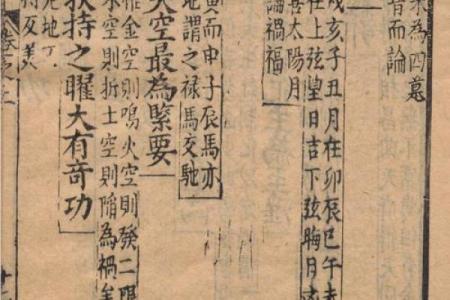 未為四墓
者而論
戌亥子丑月在卯辰巳午未
在上弦望日吉下弦晦月
喜太陽月
論禍福
寅而申子辰馬亦
地謂之祿馬交馳
天空最為緊要
惟金空則鳴火空則發二限
水空則折土空則陷為禍矣
扶持之曜大有奇功
地丁
反美